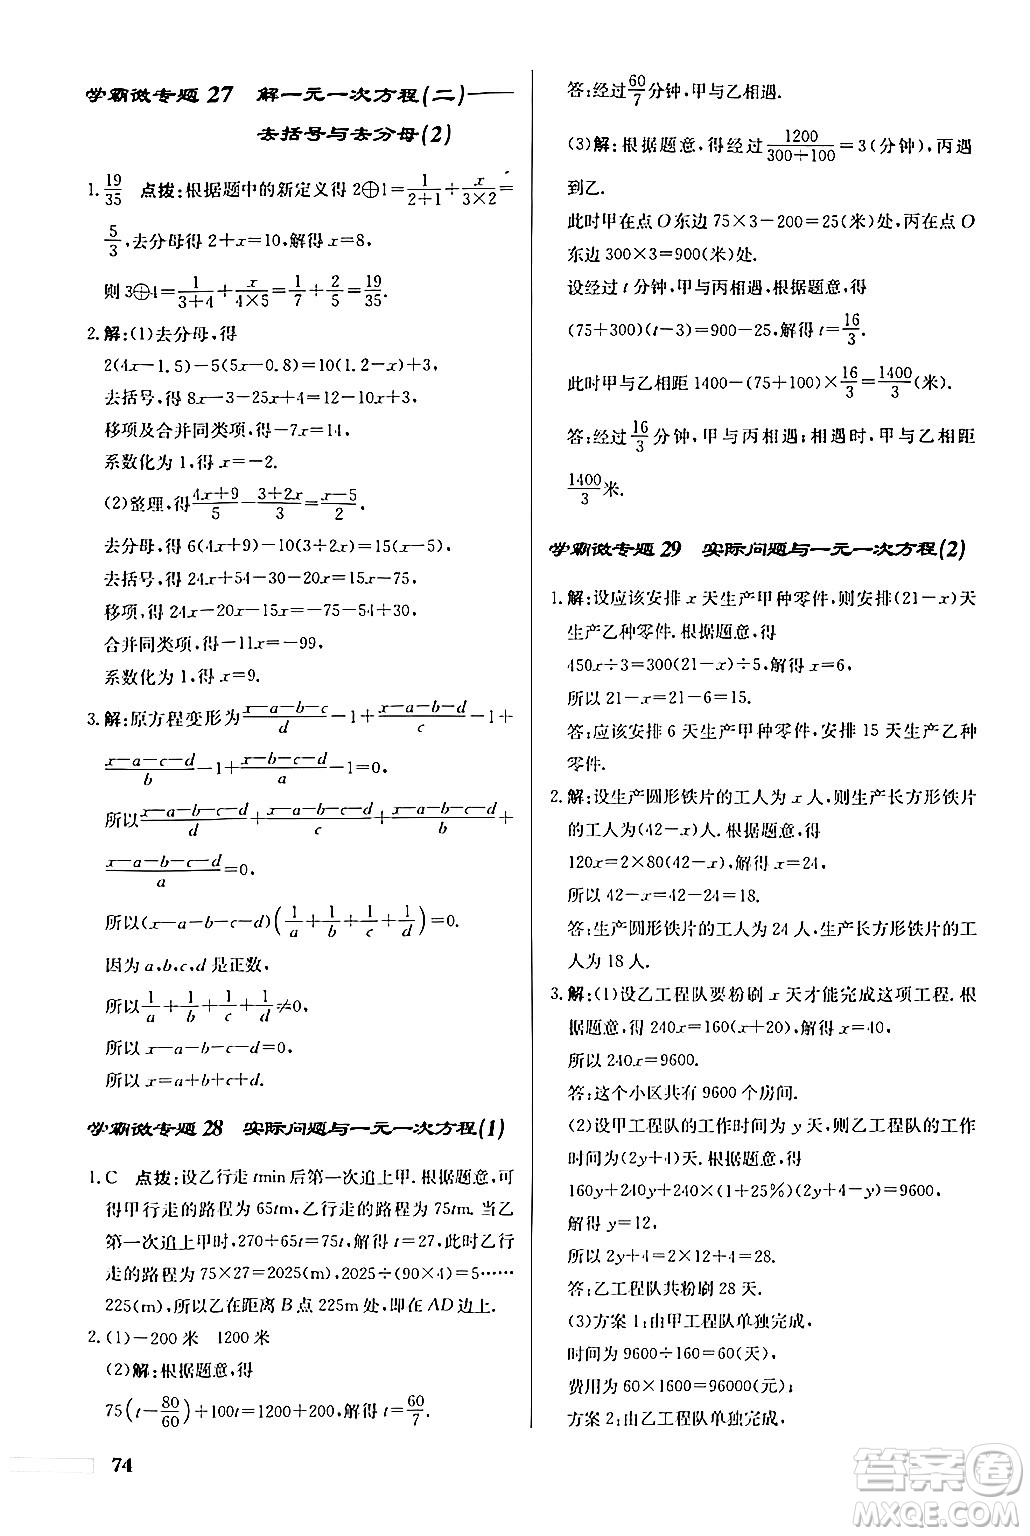 学霸微专题 27　解一元一次方程(二)——
去括号与去分母(2)
1. 19/35　点拨:根据题中的新定义得 2⊕1=1/(2+1)+x/(3×2)=
5/3,去分母得 2+x=10,解得 x=8,
则 3⊕4=1/(3+4)+x/(4×5)=1/7+2/5=19/35.
2. 解:(1)去分母,得
2(4x-1.5)-5(5x-0.8)=10(1.2-x)+3,
去括号,得 8x-3-25x+4=12-10x+3,
移项及合并同类项,得-7x=14,
系数化为 1,得 x=-2.
(2)整理,得(4x+9)/5-(3+2x)/3=(x-5)/2,
去分母,得 6(4x+9)-10(3+2x)=15(x-5),
去括号,得 24x+54-30-20x=15x-75,
移项,得 24x-20x-15x=-75-54+30,
合并同类项,得-11x=-99,
系数化为 1,得 x=9.
3. 解:原方程变形为(x-a-b-c)/d-1+(x-a-b-d)/c-1+
(x-a-c-d)/b-1+(x-b-c-d)/a-1=0,
所以(x-a-b-c-d)/d+(x-a-b-c-d)/c+(x-a-b-c-d)/b+
(x-a-b-c-d)/a=0.
所以(x-a-b-c-d)(1/a+1/b+1/c+1/d)=0.
因为 a,b,c,d 是正数,
所以1/a+1/b+1/c+1/d≠0,
所以 x-a-b-c-d=0,
所以 x=a+b+c+d.
学霸微专题 28　实际问题与一元一次方程(1)
1. C　点拨:设乙行走 tmin 后第一次追上甲.根据题意,可
得甲行走的路程为 65tm,乙行走的路程为 75tm.当乙
第一次追上甲时,270+65t=75t,解得 t=27,此时乙行
走的路程为 75×27=2025(m),2025÷(90×4)=5……
225(m),所以乙在距离 B 点 225m 处,即在 AD 边上.
2. (1)-200 米　1200 米
(2)解:根据题意,得
75(t-80/60)+100t=1200+200,解得 t=60/7.
74
答:经过60/7分钟,甲与乙相遇.
(3)解:根据题意,得1200/(300+100)=3(分钟),丙遇
到乙.
此时甲在点 O 东边 75×3-200=25(米)处,丙在点 O
东边 300×3=900(米)处.
设经过 t 分钟,甲与丙相遇,根据题意,得
(75+300)(t-3)=900-25,解得 t=16/3.
此时甲与乙相距 1400-(75+100)×16/3=1400/3(米).
答:经过16/3分钟,甲与丙相遇;相遇时,甲与乙相距
1400/3米.
学霸微专题 29　实际问题与一元一次方程(2)
1. 解:设应该安排 x 天生产甲种零件,则安排(21-x)天
生产乙种零件.根据题意,得
450x÷3=300(21-x)÷5,解得 x=6,
所以 21-x=21-6=15.
答:应该安排 6 天生产甲种零件,安排 15 天生产乙种
零件.
2. 解:设生产圆形铁片的工人为 x 人,则生产长方形铁片
的工人为(42-x)人.根据题意,得
120x=2×80(42-x),解得 x=24,
所以 42-x=42-24=18.
答:生产圆形铁片的工人为 24 人,生产长方形铁片的工
人为 18 人.
3. 解:(1)设乙工程队要粉刷 x 天才能完成这项工程.根
据题意,得 240x=160(x+20),解得 x=40,
所以 240x=9600.
答:这个小区共有 9600 个房间.
(2)设甲工程队的工作时间为 y 天,则乙工程队的工作
时间为(2y+4)天.根据题意,得
160y+240y+240(1+25%)(2y+4-y)=9600,
解得 y=12,
所以 2y+4=2×12+4=28.
答:乙工程队共粉刷 28 天.
(3)方案 1:由甲工程队单独完成,
时间为 9600÷160=60(天),
费用为 60×1600=96000(元);
方案 2:由乙工程队单独完成,
答案圈
MXQE.COM